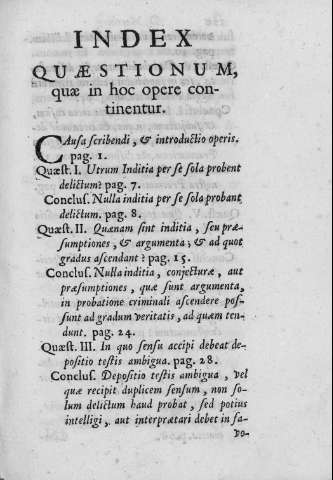 INDEX
QUÆSTIONUM,
quæ in hoc opere con-
tinentur.
CAusa scribendi, & introductio operis.
pag. 1.
Quæst. I. Utrum Inditia per se sola probent
delictum? pag. 7.
Conclus. Nulla inditia per se sola probant
delictum. pag. 8.
Quæst. II. Quænam sint inditia, seu præ-
sumptiones, & argumenta; & ad quot
gradus ascendant? pag. 15.
Conclus. Nulla inditia, conjecturæ, aut
præsumptiones, quæ sunt argumenta,
in probatione criminali ascendere pos-
sunt ad gradum veritatis, ad quem ten-
dunt. pag. 24.
Quæst. III. In quo sensu accipi debeat de-
positio testis ambigua. pag. 28.
Conclus. Depositio testis ambigua, vel
quæ recipit duplicem sensum, non so-
lum delictum haud probat, sed potius
intelligi, aut interprætari debet in fa-
vo-